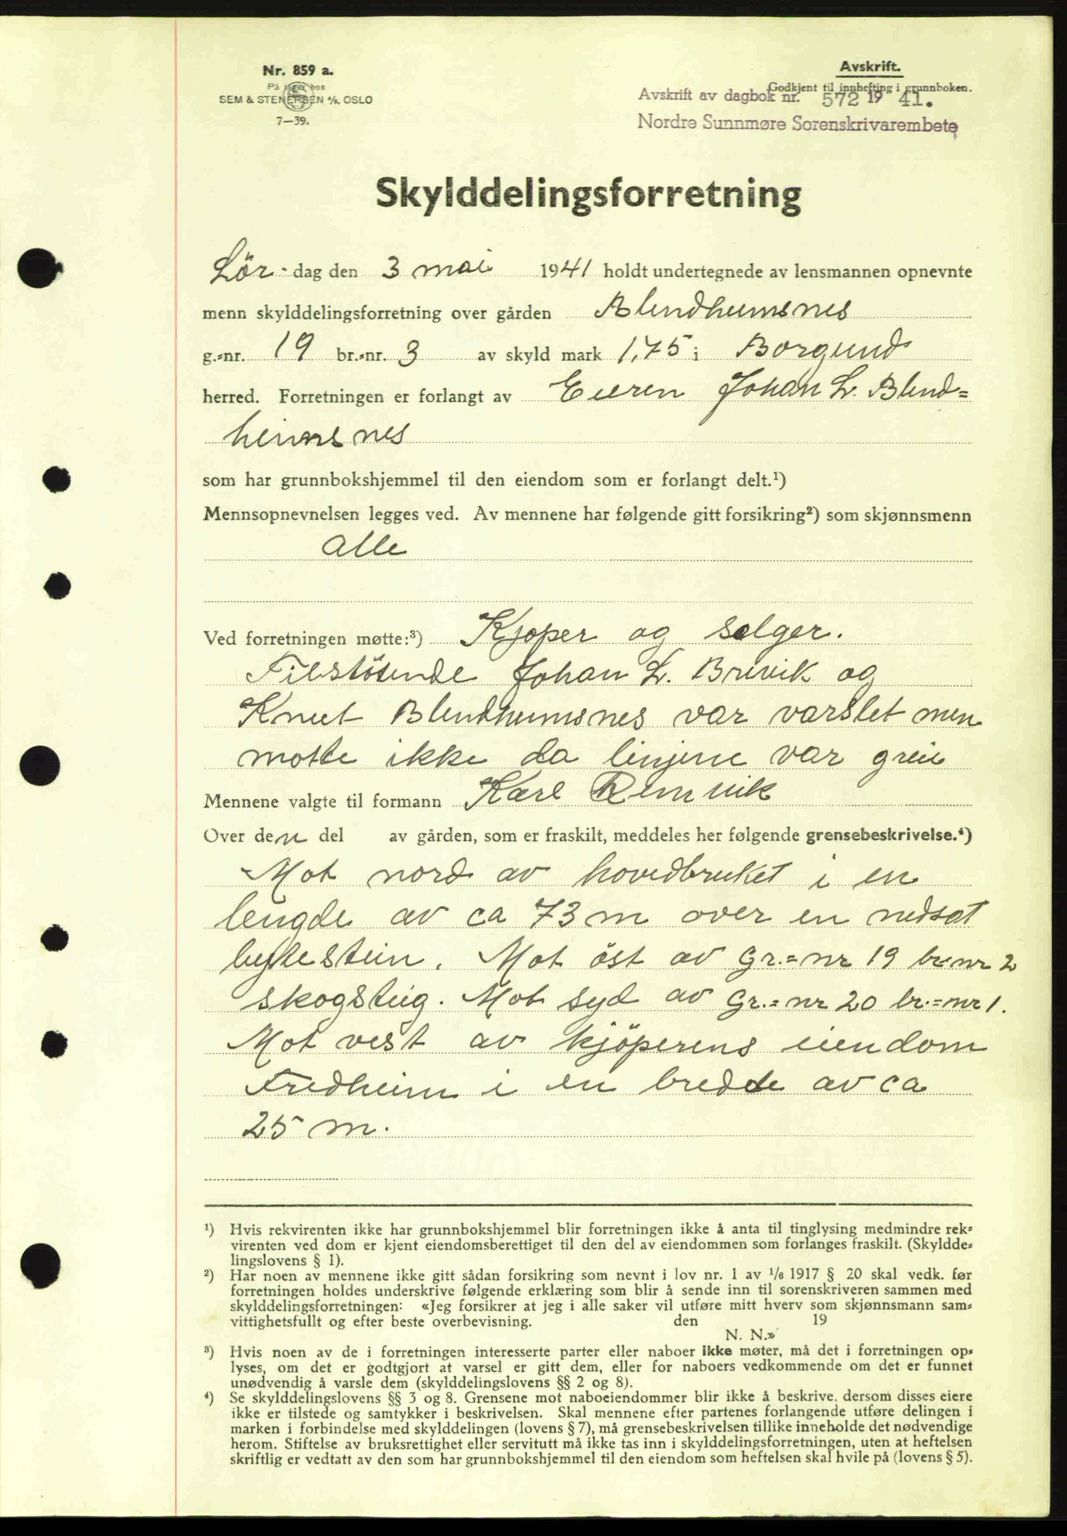 Nr. 859 a.
På lager hos
SEM & STENERSEN A/S, OSLO
7—39.
Avskrift.
Godkjent til innhefting i grunnboken.
Avskrift av dagbok nr. 572 19 41.
Nordre Sunnmøre Sorenskrivarembete
Skylddelingsforretning
Lör-dag den 3 mai 1941 holdt undertegnede av lensmannen opnevnte
menn skylddelingsforretning over gården Blindheimsnes
g.-nr. 19 br.-nr. 3 av skyld mark 1,75 i Borgund
herred. Forretningen er forlangt av Eieren Johan L. Blind=
heimsnes
som har grunnbokshjemmel til den eiendom som er forlangt delt.¹)
Mennsopnevnelsen legges ved. Av mennene har følgende gitt forsikring²) som skjønnsmenn
alle
Ved forretningen møtte:³) Kjøper og selger.
Tilstötende Johan L. Brevik og
Knut Blindheimsnes var varslet men
motte ikke da linjene var greie
Mennene valgte til formann Karl Remvik
Over den del av gården, som er fraskilt, meddeles her følgende grensebeskrivelse.⁴)
Mot nord av hovedbruket i en
lengde av ca 73 m over en nedsat
bytestein. Mot öst av Gr.=nr 19 br.nr 2
skogsteig. Mot syd av Gr.=nr 20 br.=nr 1.
Mot vest av kjöperens eiendom
Fredheim i en bredde av ca
25 m.
¹) Hvis rekvirenten ikke har grunnbokshjemmel blir forretningen ikke å anta til tinglysing medmindre rek-
virenten ved dom er kjent eiendomsberettiget til den del av eiendommen som forlanges fraskilt. (Skyldde-
lingslovens § 1).
²) Har noen av mennene ikke gitt sådan forsikring som nevnt i lov nr. 1 av 1/6 1917 § 20 skal vedk. før
forretningen holdes underskrive følgende erklæring som blir å sende inn til sorenskriveren sammen med
skylddelingsforretningen: «Jeg forsikrer at jeg i alle saker vil utføre mitt hverv som skjønnsmann sam-
vittighetsfullt og efter beste overbevisning. den 19
N. N.»
³) Hvis noen av de i forretningen interesserte parter eller naboer ikke møter, må det i forretningen op-
lyses, om det er godtgjort at varsel er gitt dem, eller for naboers vedkommende om det er funnet
unødvendig å varsle dem (skylddelingslovens §§ 2 og 8).
⁴) Se skylddelingslovens §§ 3 og 8. Grensene mot naboeiendommer blir ikke å beskrive, dersom disses eiere
ikke er tilstede og samtykker i beskrivelsen. Skal mennene efter partenes forlangende utføre delingen i
marken i forbindelse med skylddelingen (lovens § 7), må grensebeskrivelsen tillike inneholde det nødvendige
herom. Stiftelse av bruksrettighet eller servitutt må ikke tas inn i skylddelingsforretningen, uten at heftelsen
skriftlig er vedtatt av den som har grunnbokshjemmel til den eiendom som heftelsen skal hvile på (lovens § 5).